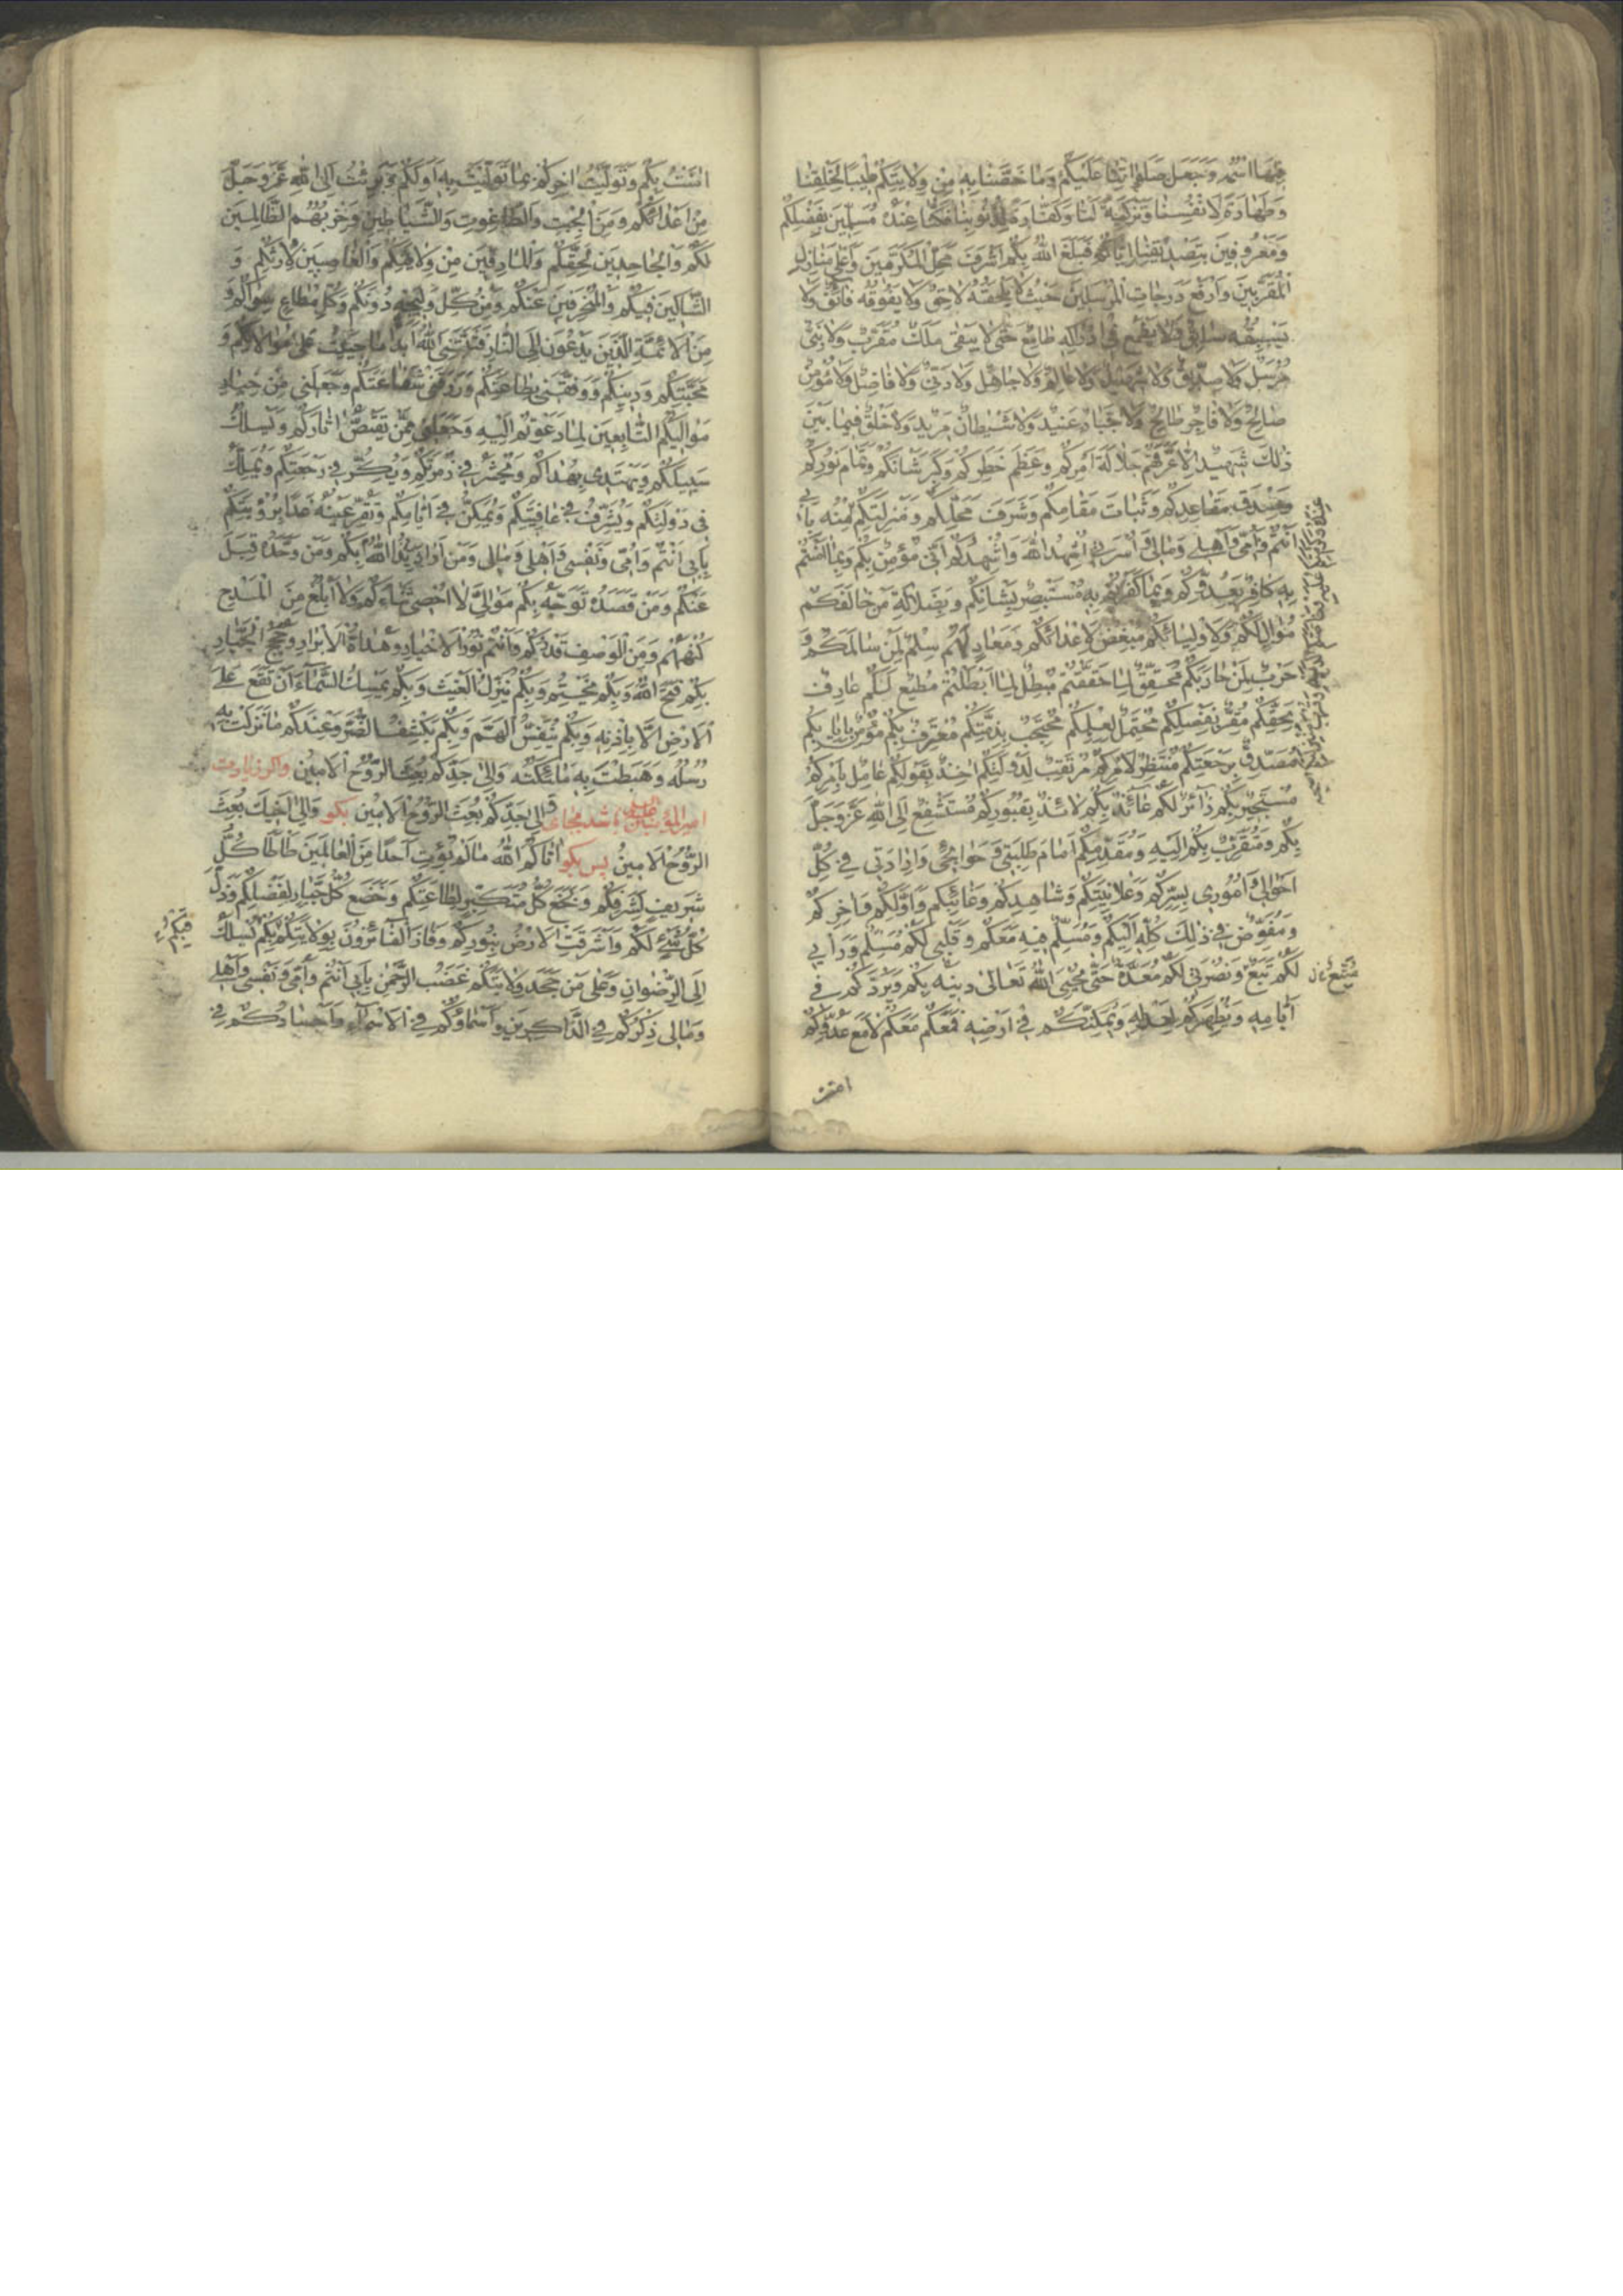 فِيهَا اسْمُهُ وَجَعَلَ صَلَوَاتِنَا عَلَيْكُمْ وَمَا خَصَّنَا بِهِ مِنْ وَلَايَتِكُمْ طِيبًا لِخَلْقِنَا
وَطَهَارَةً لِأَنْفُسِنَا وَتَزْكِيَةً لَنَا وَكَفَّارَةً لِذُنُوبِنَا فَكُنَّا عِنْدَهُ مُسَلِّمِينَ بِفَضْلِكُمْ
وَمَعْرُوفِينَ بِتَصْدِيقِنَا إِيَّاكُمْ فَبَلَغَ اللَّهُ بِكُمْ أَشْرَفَ مَحَلِّ الْمُكَرَّمِينَ وَأَعْلَى مَنَازِلِ
الْمُقَرَّبِينَ وَأَرْفَعَ دَرَجَاتِ الْمُرْسَلِينَ حَيْثُ لَا يَلْحَقُهُ لَاحِقٌ وَلَا يَفُوقُهُ فَائِقٌ وَلَا
يَسْبِقُهُ سَابِقٌ وَلَا يَطْمَعُ فِي إِدْرَاكِهِ طَامِعٌ حَتَّى لَا يَبْقَى مَلَكٌ مُقَرَّبٌ وَلَا نَبِيٌّ
مُرْسَلٌ وَلَا صِدِّيقٌ وَلَا شَهِيدٌ وَلَا عَالِمٌ وَلَا جَاهِلٌ وَلَا دَنِيٌّ وَلَا فَاضِلٌ وَلَا مُؤْمِنٌ
صَالِحٌ وَلَا فَاجِرٌ طَالِحٌ وَلَا جَبَّارٌ عَنِيدٌ وَلَا شَيْطَانٌ مَرِيدٌ وَلَا خَلْقٌ فِيمَا بَيْنَ
ذَلِكَ شَهِيدٌ إِلَّا عَرَّفَهُمْ جَلَالَةَ أَمْرِكُمْ وَعِظَمَ خَطَرِكُمْ وَكِبَرَ شَأْنِكُمْ وَتَمَامَ نُورِكُمْ
وَصِدْقَ مَقَاعِدِكُمْ وَثَبَاتَ مَقَامِكُمْ وَشَرَفَ مَحَلِّكُمْ وَمَنْزِلَتِكُمْ مِنْهُ بِأَبِي
أَنْتُمْ وَأُمِّي وَأَهْلِي وَمَالِي وَأُسْرَتِي أُشْهِدُ اللَّهَ وَأُشْهِدُكُمْ أَنِّي مُؤْمِنٌ بِكُمْ وَبِمَا آمَنْتُمْ
بِهِ كَافِرٌ بِعَدُوِّكُمْ وَبِمَا كَفَرْتُمْ بِهِ مُسْتَبْصِرٌ بِشَأْنِكُمْ وَبِضَلَالَةِ مَنْ خَالَفَكُمْ
مُوَالٍ لَكُمْ وَلِأَوْلِيَائِكُمْ مُبْغِضٌ لِأَعْدَائِكُمْ وَمُعَادٍ لَهُمْ سِلْمٌ لِمَنْ سَالَمَكُمْ وَ
حَرْبٌ لِمَنْ حَارَبَكُمْ مُحَقِّقٌ لِمَا حَقَّقْتُمْ مُبْطِلٌ لِمَا أَبْطَلْتُمْ مُطِيعٌ لَكُمْ عَارِفٌ
بِحَقِّكُمْ مُقِرٌّ بِفَضْلِكُمْ مُحْتَمِلٌ لِعِلْمِكُمْ مُحْتَجِبٌ بِذِمَّتِكُمْ مُعْتَرِفٌ بِكُمْ مُؤْمِنٌ بِإِيَابِكُمْ
مُصَدِّقٌ بِرَجْعَتِكُمْ مُنْتَظِرٌ لِأَمْرِكُمْ مُرْتَقِبٌ لِدَوْلَتِكُمْ آخِذٌ بِقَوْلِكُمْ عَامِلٌ بِأَمْرِكُمْ
مُسْتَجِيرٌ بِكُمْ زَائِرٌ لَكُمْ عَائِذٌ بِكُمْ لَائِذٌ بِقُبُورِكُمْ مُسْتَشْفِعٌ إِلَى اللَّهِ عَزَّ وَجَلَّ
بِكُمْ وَمُتَقَرِّبٌ بِكُمْ إِلَيْهِ وَمُقَدِّمُكُمْ أَمَامَ طَلِبَتِي وَحَوَائِجِي وَإِرَادَتِي فِي كُلِّ
أَحْوَالِي وَأُمُورِي بِسِرِّكُمْ وَعَلَانِيَتِكُمْ وَشَاهِدِكُمْ وَغَائِبِكُمْ وَأَوَّلِكُمْ وَآخِرِكُمْ
وَمُفَوِّضٌ فِي ذَلِكَ كُلِّهِ إِلَيْكُمْ وَمُسَلِّمٌ فِيهِ مَعَكُمْ وَقَلْبِي لَكُمْ مُسَلِّمٌ وَرَأْيِي
لَكُمْ تَبَعٌ وَنُصْرَتِي لَكُمْ مُعَدَّةٌ حَتَّى يُحْيِيَ اللَّهُ تَعَالَى دِينَهُ بِكُمْ وَيَرُدَّكُمْ فِي
أَيَّامِهِ وَيُظْهِرَكُمْ لِعَدْلِهِ وَيُمَكِّنَكُمْ فِي أَرْضِهِ فَمَعَكُمْ مَعَكُمْ لَا مَعَ عَدُوِّكُمْ
امنت
آمَنْتُ بِكُمْ وَتَوَلَّيْتُ آخِرَكُمْ بِمَا تَوَلَّيْتُ بِهِ أَوَّلَكُمْ وَبَرِئْتُ إِلَى اللَّهِ عَزَّ وَجَلَّ
مِنْ أَعْدَائِكُمْ وَمِنَ الْجِبْتِ وَالطَّاغُوتِ وَالشَّيَاطِينِ وَحِزْبِهُمُ الظَّالِمِينَ
لَكُمْ وَالْجَاحِدِينَ لِحَقِّكُمْ وَالْمَارِقِينَ مِنْ وَلَايَتِكُمْ وَالْغَاصِبِينَ لِإِرْثِكُمْ وَ
الشَّاكِّينَ فِيكُمْ وَالْمُنْحَرِفِينَ عَنْكُمْ وَمِنْ كُلِّ وَلِيجَةٍ دُونَكُمْ وَكُلِّ مُطَاعٍ سِوَاكُمْ وَ
مِنَ الْأَئِمَّةِ الَّذِينَ يَدْعُونَ إِلَى النَّارِ فَثَبَّتَنِيَ اللَّهُ أَبَدًا مَا حَيِيتُ عَلَى مُوَالَاتِكُمْ وَ
مَحَبَّتِكُمْ وَدِينِكُمْ وَوَفَّقَنِي لِطَاعَتِكُمْ وَرَزَقَنِي شَفَاعَتَكُمْ وَجَعَلَنِي مِنْ خِيَارِ
مَوَالِيكُمُ التَّابِعِينَ لِمَا دَعَوْتُمْ إِلَيْهِ وَجَعَلَنِي مِمَّنْ يَقْتَصُّ آثَارَكُمْ وَيَسْلُكُ
سَبِيلَكُمْ وَيَهْتَدِي بِهُدَاكُمْ وَيُحْشَرُ فِي زُمْرَتِكُمْ وَيَكُرُّ فِي رَجْعَتِكُمْ وَيُمَلَّكُ
فِي دَوْلَتِكُمْ وَيُشَرَّفُ فِي عَافِيَتِكُمْ وَيُمَكَّنُ فِي أَيَّامِكُمْ وَتَقَرُّ عَيْنُهُ غَدًا بِرُؤْيَتِكُمْ
بِأَبِي أَنْتُمْ وَأُمِّي وَنَفْسِي وَأَهْلِي وَمَالِي وَمَنْ أَرَادَ اللَّهَ بَدَأَ بِكُمْ وَمَنْ وَحَّدَهُ قَبِلَ
عَنْكُمْ وَمَنْ قَصَدَهُ تَوَجَّهَ بِكُمْ مَوَالِيَّ لَا أُحْصِي ثَنَاءَكُمْ وَلَا أَبْلُغُ مِنَ الْمَدْحِ
كُنْهَكُمْ وَمِنَ الْوَصْفِ قَدْرَكُمْ وَأَنْتُمْ نُورُ الْأَخْيَارِ وَهُدَاةُ الْأَبْرَارِ وَحُجَجُ الْجَبَّارِ
بِكُمْ فَتَحَ اللَّهُ وَبِكُمْ يَخْتِمُ وَبِكُمْ يُنَزِّلُ الْغَيْثَ وَبِكُمْ يُمْسِكُ السَّمَاءَ أَنْ تَقَعَ عَلَى
الْأَرْضِ إِلَّا بِإِذْنِهِ وَبِكُمْ يُنَفِّسُ الْهَمَّ وَبِكُمْ يَكْشِفُ الضُّرَّ وَعِنْدَكُمْ مَا نَزَلَتْ بِهِ
رُسُلُهُ وَهَبَطَتْ بِهِ مَلَائِكَتُهُ وَإِلَى جَدِّكُمْ بُعِثَ الرُّوحُ الْأَمِينُ واكر زيارت
امير المؤمنين عليه السلام باشد بجاى وَإِلَى جَدِّكُمْ بُعِثَ الرُّوحُ الْأَمِينُ بكو وَإِلَى أَخِيكَ بُعِثَ
الرُّوحُ الْأَمِينُ پس بكو آتَاكُمُ اللَّهُ مَا لَمْ يُؤْتِ أَحَدًا مِنَ الْعَالَمِينَ طَأْطَأَ كُلُّ
شَرِيفٍ لِشَرَفِكُمْ وَبَخَعَ كُلُّ مُتَكَبِّرٍ لِطَاعَتِكُمْ وَخَضَعَ كُلُّ جَبَّارٍ لِفَضْلِكُمْ وَذَلَّ
كُلُّ شَيْءٍ لَكُمْ وَأَشْرَقَتِ الْأَرْضُ بِنُورِكُمْ وَفَازَ الْفَائِزُونَ بِوَلَايَتِكُمْ بِكُمْ يُسْلَكُ
إِلَى الرِّضْوَانِ وَعَلَى مَنْ جَحَدَ وَلَايَتَكُمْ غَضَبُ الرَّحْمَنِ بِأَبِي أَنْتُمْ وَأُمِّي وَنَفْسِي وَأَهْلِي
وَمَالِي ذِكْرُكُمْ فِي الذَّاكِرِينَ وَأَسْمَاؤُكُمْ فِي الْأَسْمَاءِ وَأَجْسَادُكُمْ فِي